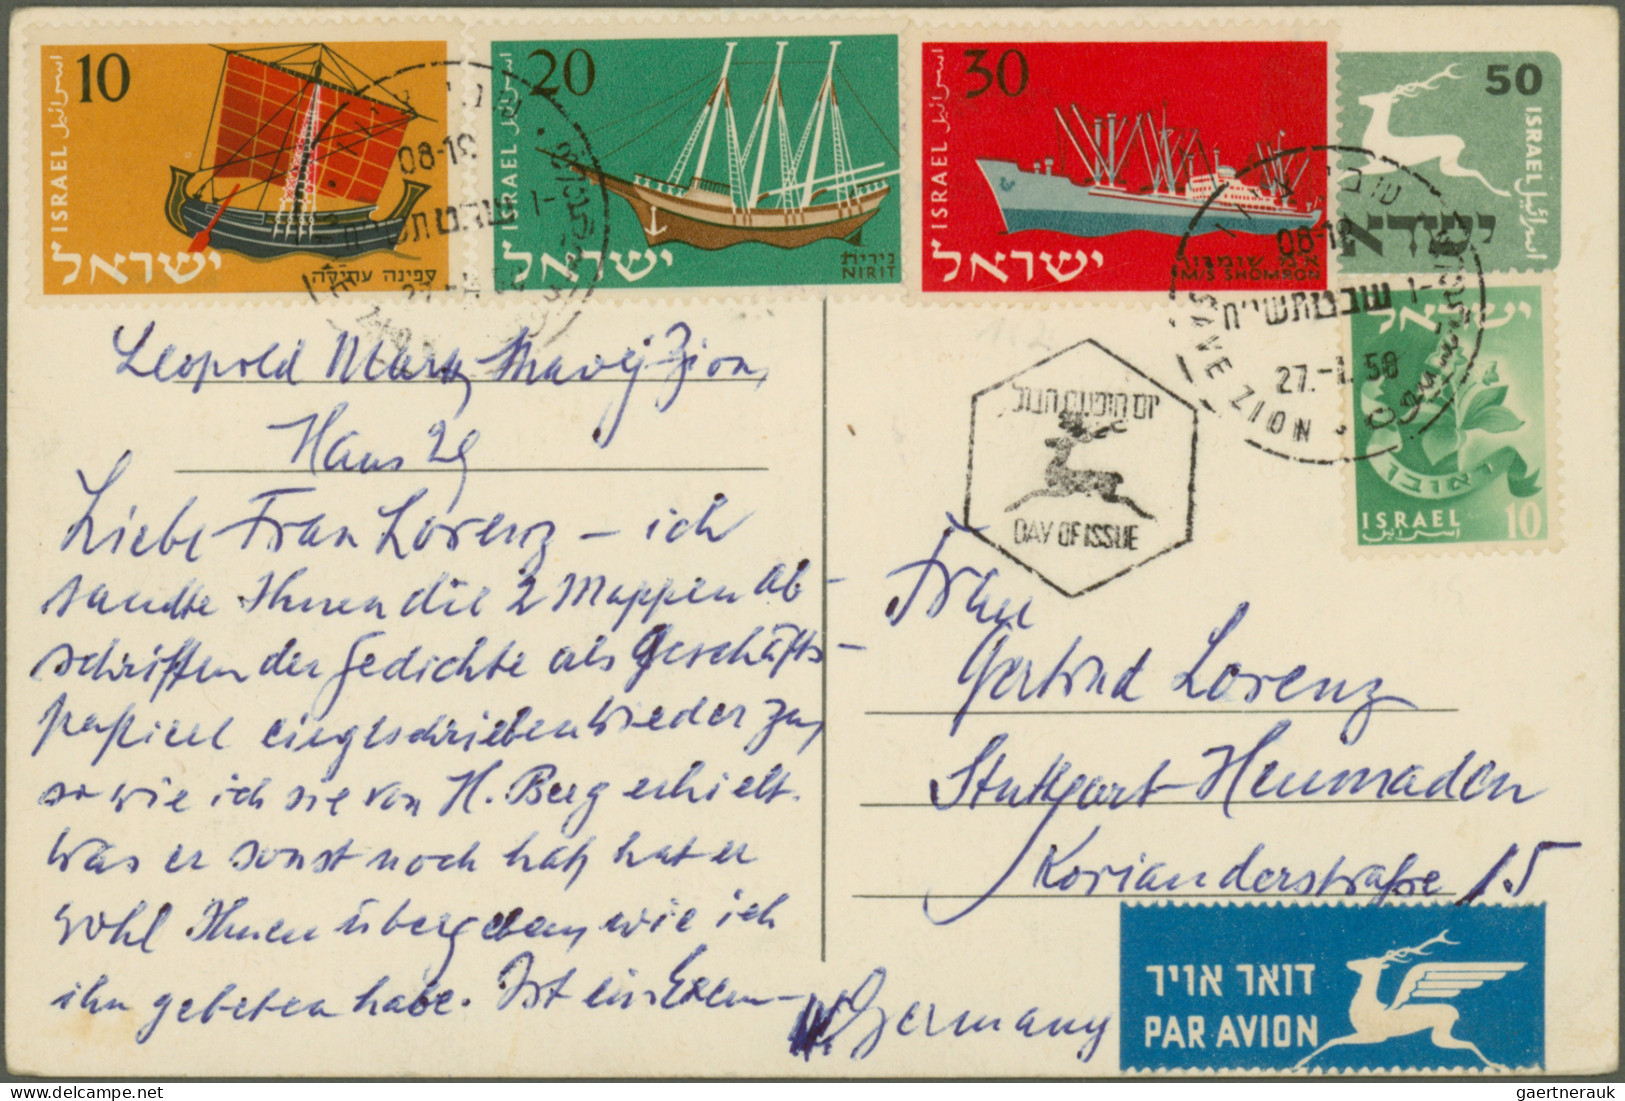 10
ISRAEL اسرائيل
ישראל
ספינה עתיקה
20
ISRAEL اسرائيل
ישראל
נירית
NIRIT
30
ISRAEL اسرائيل
ישראל
א״מ שומרון
M/S SHOMRON
50
ISRAEL اسرائيل
ישראל
ישראל
ראובן
ISRAEL 10
اسرائيل
08-19
08-19
שבט תשי״ח
27.-1.58
SHAVE ZION
יום הופעת הבול
DAY OF ISSUE
Leopold Marx, Shavej Zion,
Haus 29
Liebe Frau Lorenz – ich
sandte Ihnen die 2 Mappen Ab-
schriften der Gedichte als Geschäfts-
papiere eingeschrieben wieder zu,
so wie ich sie von H. Berg erhielt.
Was er sonst noch hat, hat er
wohl Ihnen übergeben, wie ich
ihn gebeten habe. Ist ein Exem-
Frau
Gertrud Lorenz
Stuttgart-Heumaden
Korianderstraße 15
W. Germany
דואר אויר
PAR AVION
delcampe.net
gaertnerauk